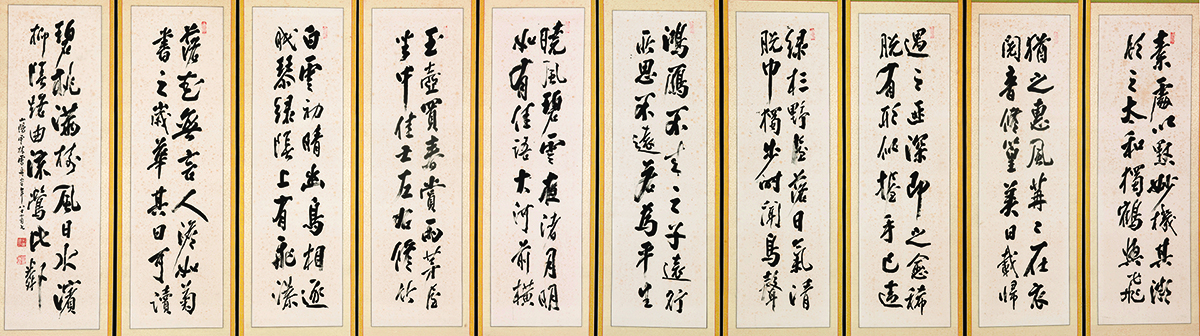 素處以默妙機其微
飲之太和獨鶴與飛
猶之惠風苒々在衣
閱音修篁美曰載歸
遇之匪深即之愈稀
脫有形似握手已違
綠杉野屋落日氣清
脫巾獨步時聞鳥聲
鴻鴈不來之子遠行
所思不遠若為平生
曉風碧雲夜渚月明
如有佳語大河前橫
玉壺買春賞雨茅屋
坐中佳士左右修竹
白雲初晴幽鳥相逐
眠琴綠陰上有飛瀑
落花無言人澹如菊
書之歲華其曰可讀
碧桃滿樹風日水濱
柳陰路曲流鶯比鄰